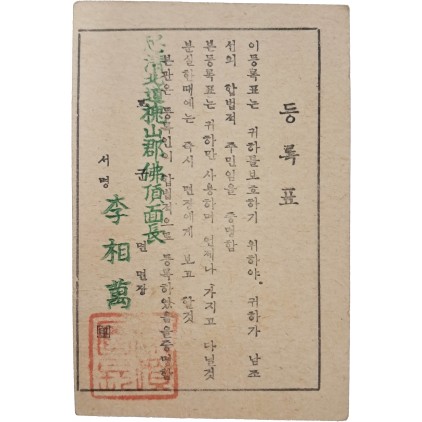 등록표
이등록표는 귀하를보호하기 위하야. 귀하가 남조
선의 합법적 주민임을 증명함
본등록표는 귀하만 사용하며 언제나 가지고 다닐것
분실한때에는 즉시 면장에게 보고 할것
본관은 등록인이 합법적으로 등록하였음을증명함
忠淸北道槐山郡佛頂面長
도 군 면 면장
서명 李相萬